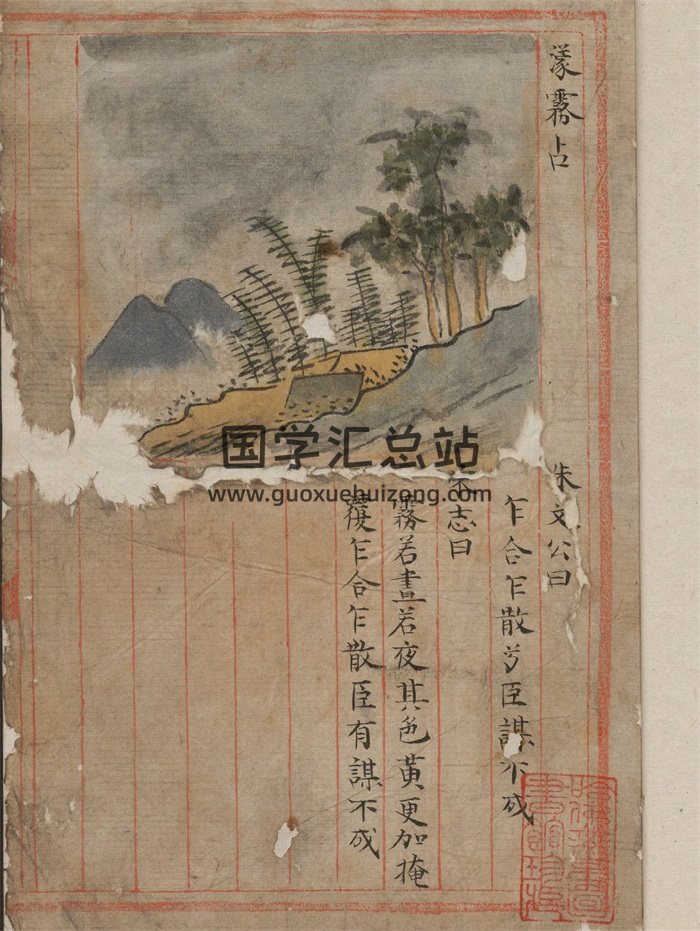 濛霧占
朱文公曰
乍合乍散兮臣謀不成
志曰
霧若晝若夜其色黃更加掩
覆乍合乍散臣有謀不成
国学汇总站
www.guoxuehuizong.com